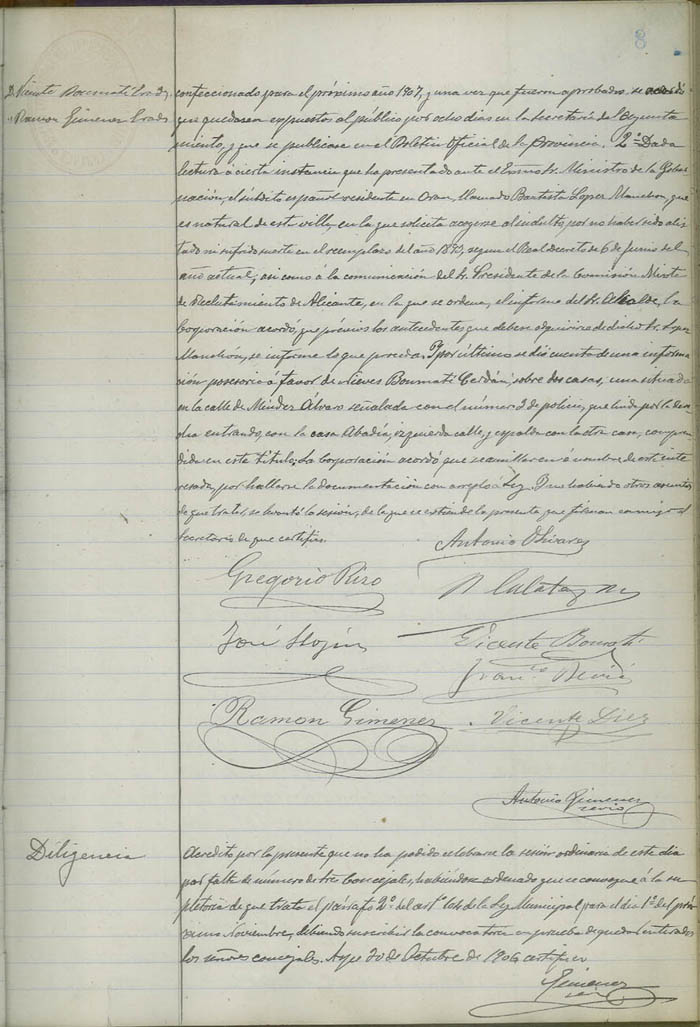 8
D. Vicente Boumati Cerdá
" Ramon Gimenez Cerdá
confeccionado para el próximo año 1907, y una vez que fueron aprobados se acordó
que quedasen expuestos al público por ocho dias en la Secretaría del Ayunta
miento, y que se publicase en el Boletin Oficial de la provincia. 2º Dada
lectura á cierta instancia que ha presentado ante el Exmo Sr. Ministro de la Gober
nación, el súbdito español residente en Oran, llamado Bautista Lopez Manchon, que
es natural de esta villa, en la que solicita acogerse al indulto, por no haber sido alis
tado ni sufrido suerte en el reemplazo del año segun el Real decreto de 6 de Junio del
año actual; asi como á la comunicación del Sr. Presidente de la Comisión Mixta
de Reclutamiento de Alicante, en la que se ordena, el informe del Sr. Alcalde, la
Corporación acordó, que prévios los antecedentes que deben adquirirse de dicho Sr. Lopez
Manchón, se informe lo que proceda. Y por último se dió cuenta de una informa
ción posesoria á favor de Nieves Boumatí Cerdán, sobre dos casas, una situada
en la calle de Mendez Álvaro señalada con el número 3 de policia, que linda por la dere
cha entrando, con la casa Abadía, izquierda calle, y espalda con la otra casa, compren
dida en este título; La Corporación acordó que se amillaren á nombre de esta inte
resada, por hallarse la documentación con arreglo á Ley. Y no habiendo otros asuntos
de que tratar, se levantó la sesión, de la que se extiende la presente que firman conmigo el
Secretario de que certifico.
Antonio Olivares
Gregorio Rizo
Calatayud
José Llopis
Vicente Boumati
Franco
Ramon Gimenez
Vicente Diez
Antonio Gimenez
Diligencia
Acredito por la presente que no ha podido celebrarse la sesión ordinaria de este dia
por falta de número de tres Concejales, habiéndose ordenado que se convoque á la su
pletoria de que trata el párrafo 2º del artº 104 de la Ley Municipal para el dia 1º del pró
ximo Noviembre, debiendo suscribir la convocatoria en prueba de quedar enterados
los señores concejales. Aspe 30 de Octubre de 1906, certifico
Gimenez